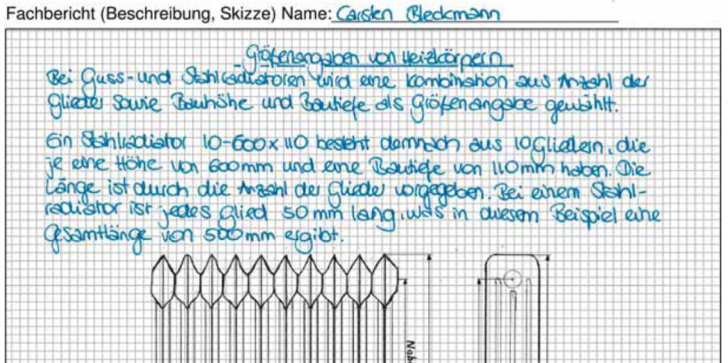 Fachbericht (Beschreibung, Skizze) Name: Carsten Bleckmann
Größenangaben von Heizkörpern
Bei Guss- und Stahlradiatoren wird eine Kombination aus Anzahl der
Glieder sowie Bauhöhe und Bautiefe als Größenangabe gewählt.
Ein Stahlradiator 10-600x110 besteht demnach aus 10 Gliedern, die
je eine Höhe von 600mm und eine Bautiefe von 110mm haben. Die
Länge ist durch die Anzahl der Glieder vorgegeben. Bei einem Stahl-
radiator ist jedes Glied 50mm lang, was in diesem Beispiel eine
Gesamtlänge von 500mm ergibt.